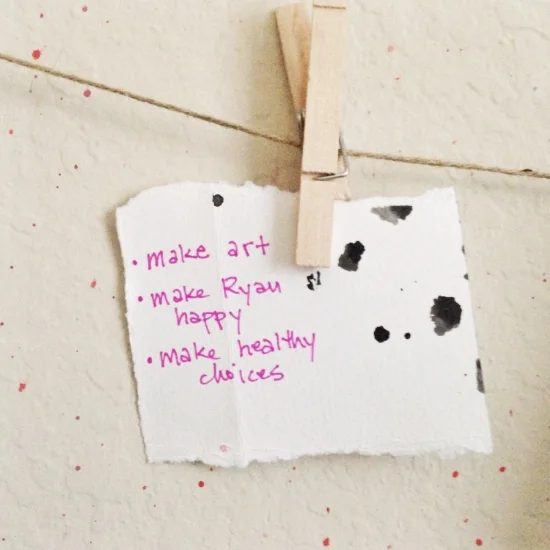 • make art
• make Ryan
happy
• make healthy
choices